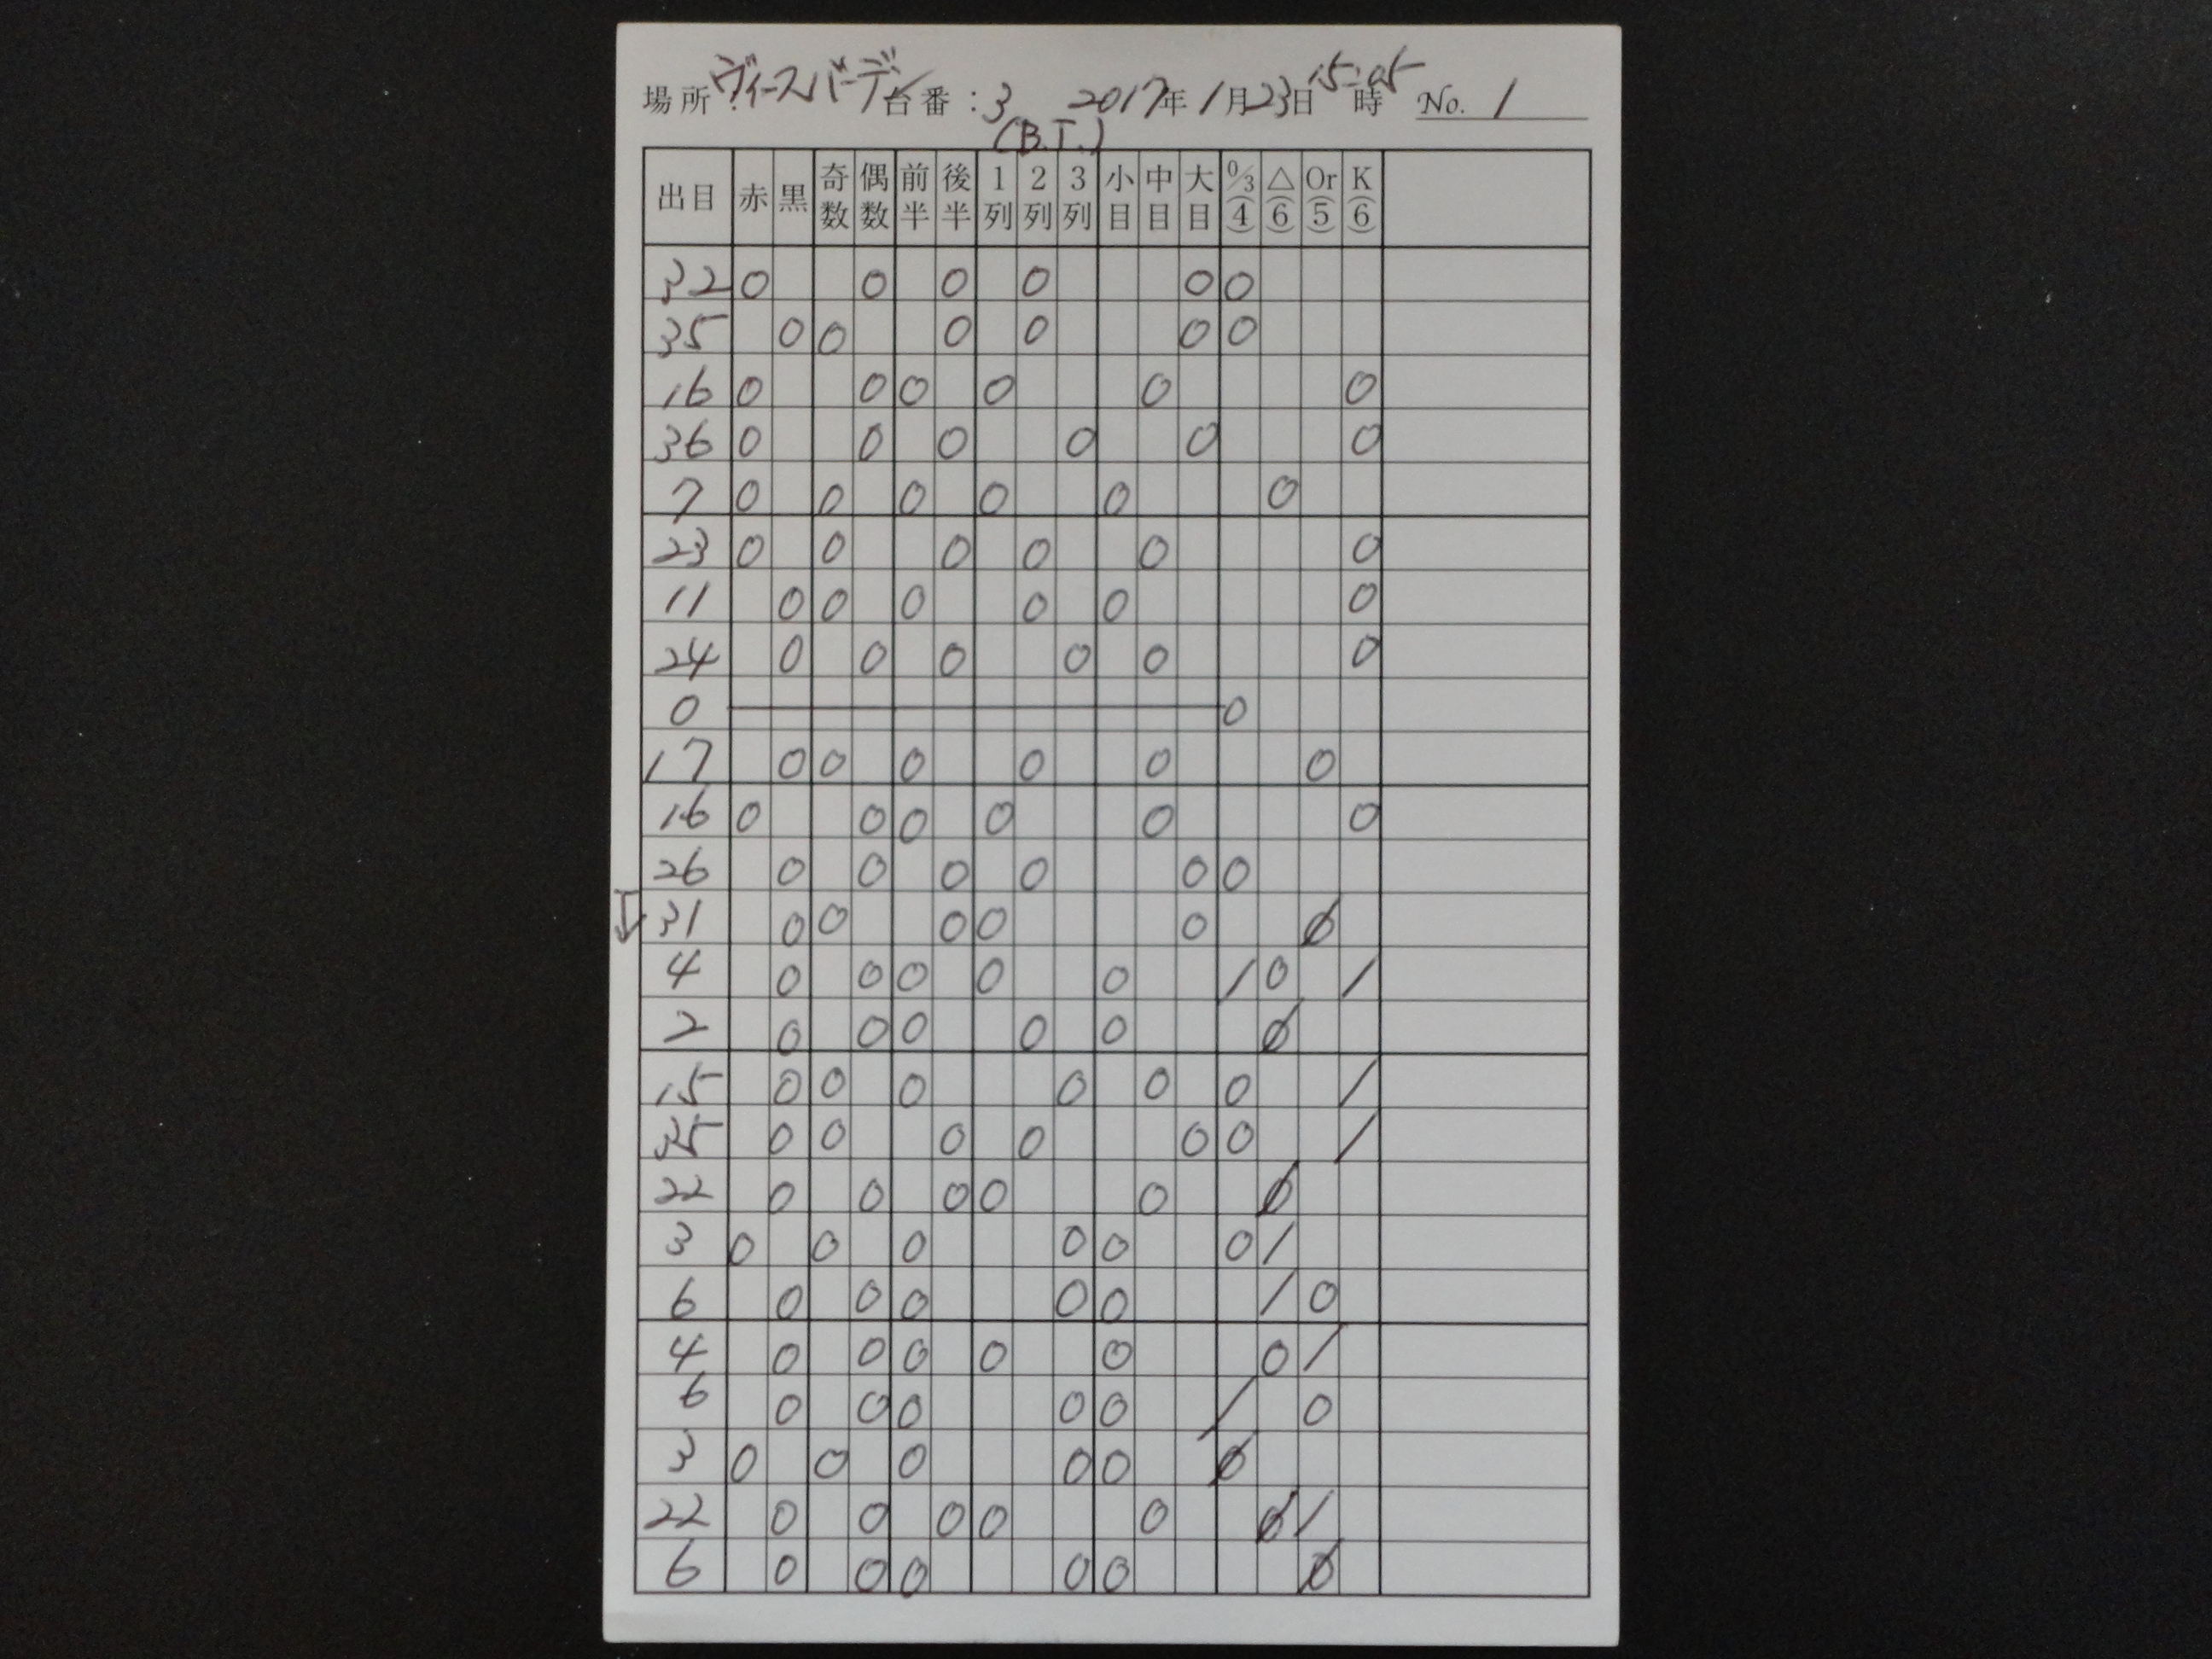 場所:ヴィースバーデン 台番:3 2017年1月23日15:05時 No. 1
(B.T.)
出目 赤 黒 奇数 偶数 前半 後半 1列 2列 3列 小目 中目 大目 0/3(4) △(6) Or(5) K(6)
32 0 0 0 0 0 0
35 0 0 0 0 0 0
16 0 0 0 0 0 0
36 0 0 0 0 0 0
7 0 0 0 0 0 0
23 0 0 0 0 0 0
11 0 0 0 0 0 0
24 0 0 0 0 0 0
0 0
17 0 0 0 0 0 0
16 0 0 0 0 0 0
26 0 0 0 0 0 0
31 0 0 0 0 0 0
4 0 0 0 0 0 / 0 /
2 0 0 0 0 0 0
15 0 0 0 0 0 0 /
35 0 0 0 0 0 0 /
22 0 0 0 0 0 0
3 0 0 0 0 0 0 /
6 0 0 0 0 0 / 0
4 0 0 0 0 0 0 /
6 0 0 0 0 0 / 0
3 0 0 0 0 0 0
22 0 0 0 0 0 0 /
6 0 0 0 0 0 0